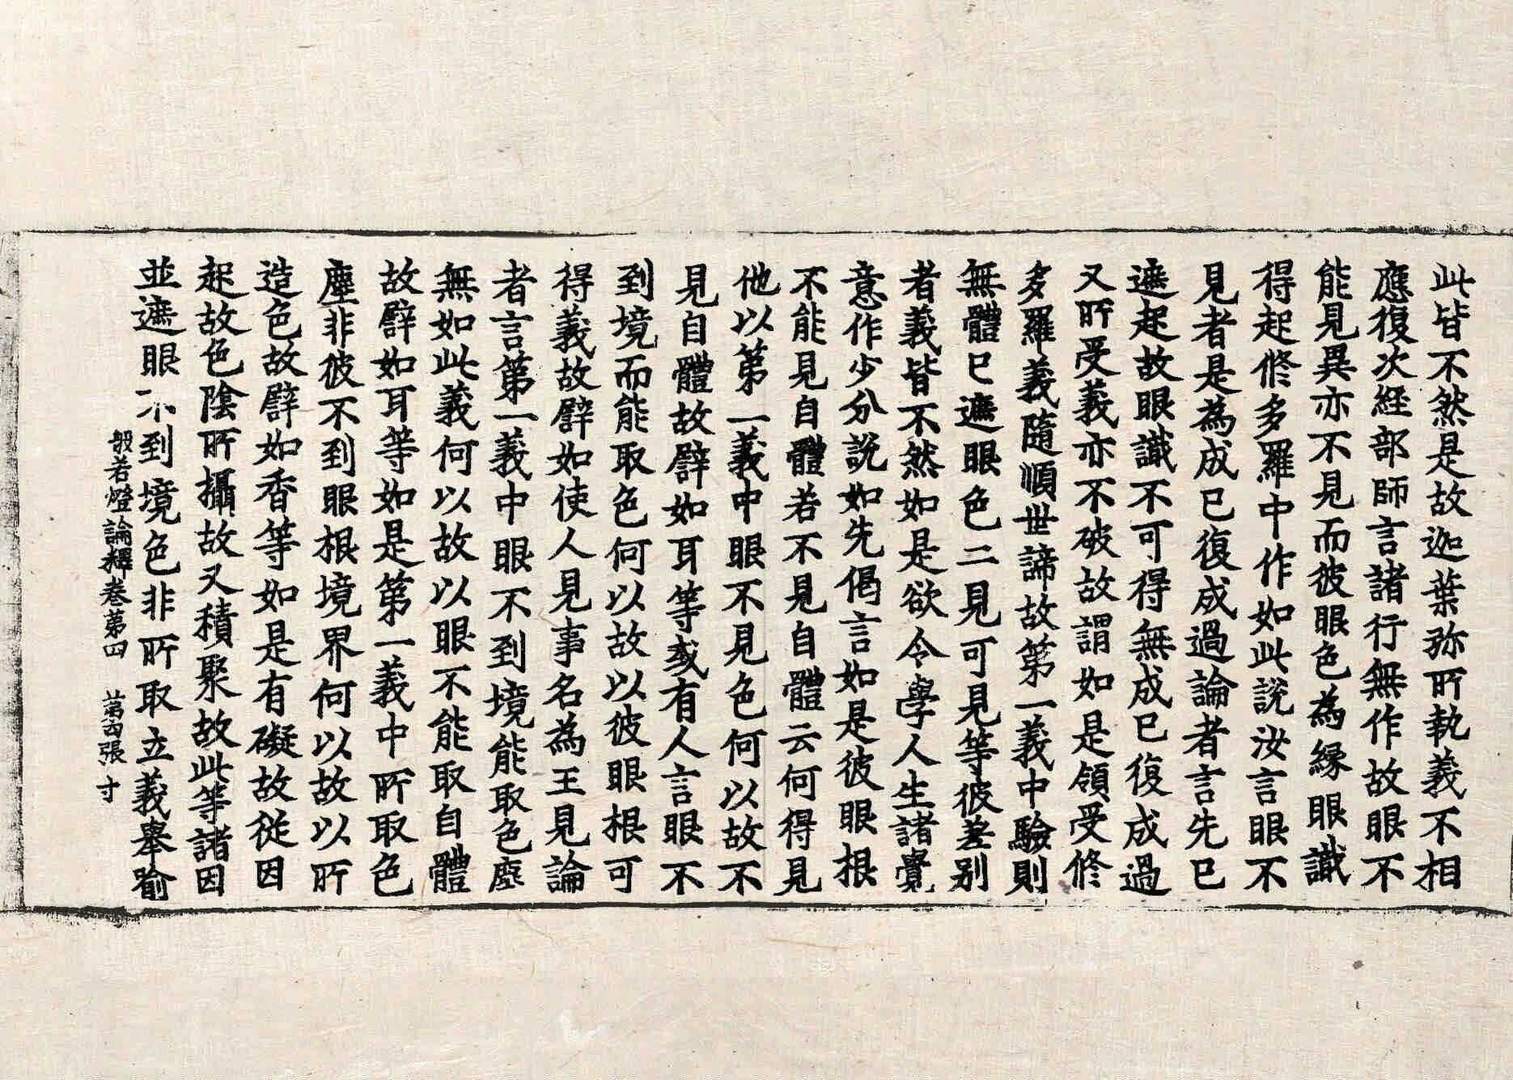 此皆不然是故迦葉弥所執義不相
應復次經部師言諸行無作故眼不
能見異亦不見而彼眼色為縁眼識
得起修多羅中作如此說汝言眼不
見者是為成已復成過論者言先已
遮起故眼識不可得無成已復成過
又所受義亦不破故謂如是領受修
多羅義隨順世諦故第一義中驗則
無體已遮眼色二見可見等彼差別
者義皆不然如是欲令學人生諸覺
意作少分說如先偈言如是彼眼根
不能見自體若不見自體云何得見
他以第一義中眼不見色何以故不
見自體故譬如耳等或有人言眼不
到境而能取色何以故以彼眼根可
得義故譬如使人見事名為王見論
者言第一義中眼不到境能取色塵
無如此義何以故以眼不能取自體
故譬如耳等如是第一義中所取色
塵非彼不到眼根境界何以故以所
造色故譬如香等如是有礙故從因
起故色陰所攝故又積聚故此等諸因
並遮眼不到境色非所取立義舉喻
般若燈論釋卷第四 第四張 寸